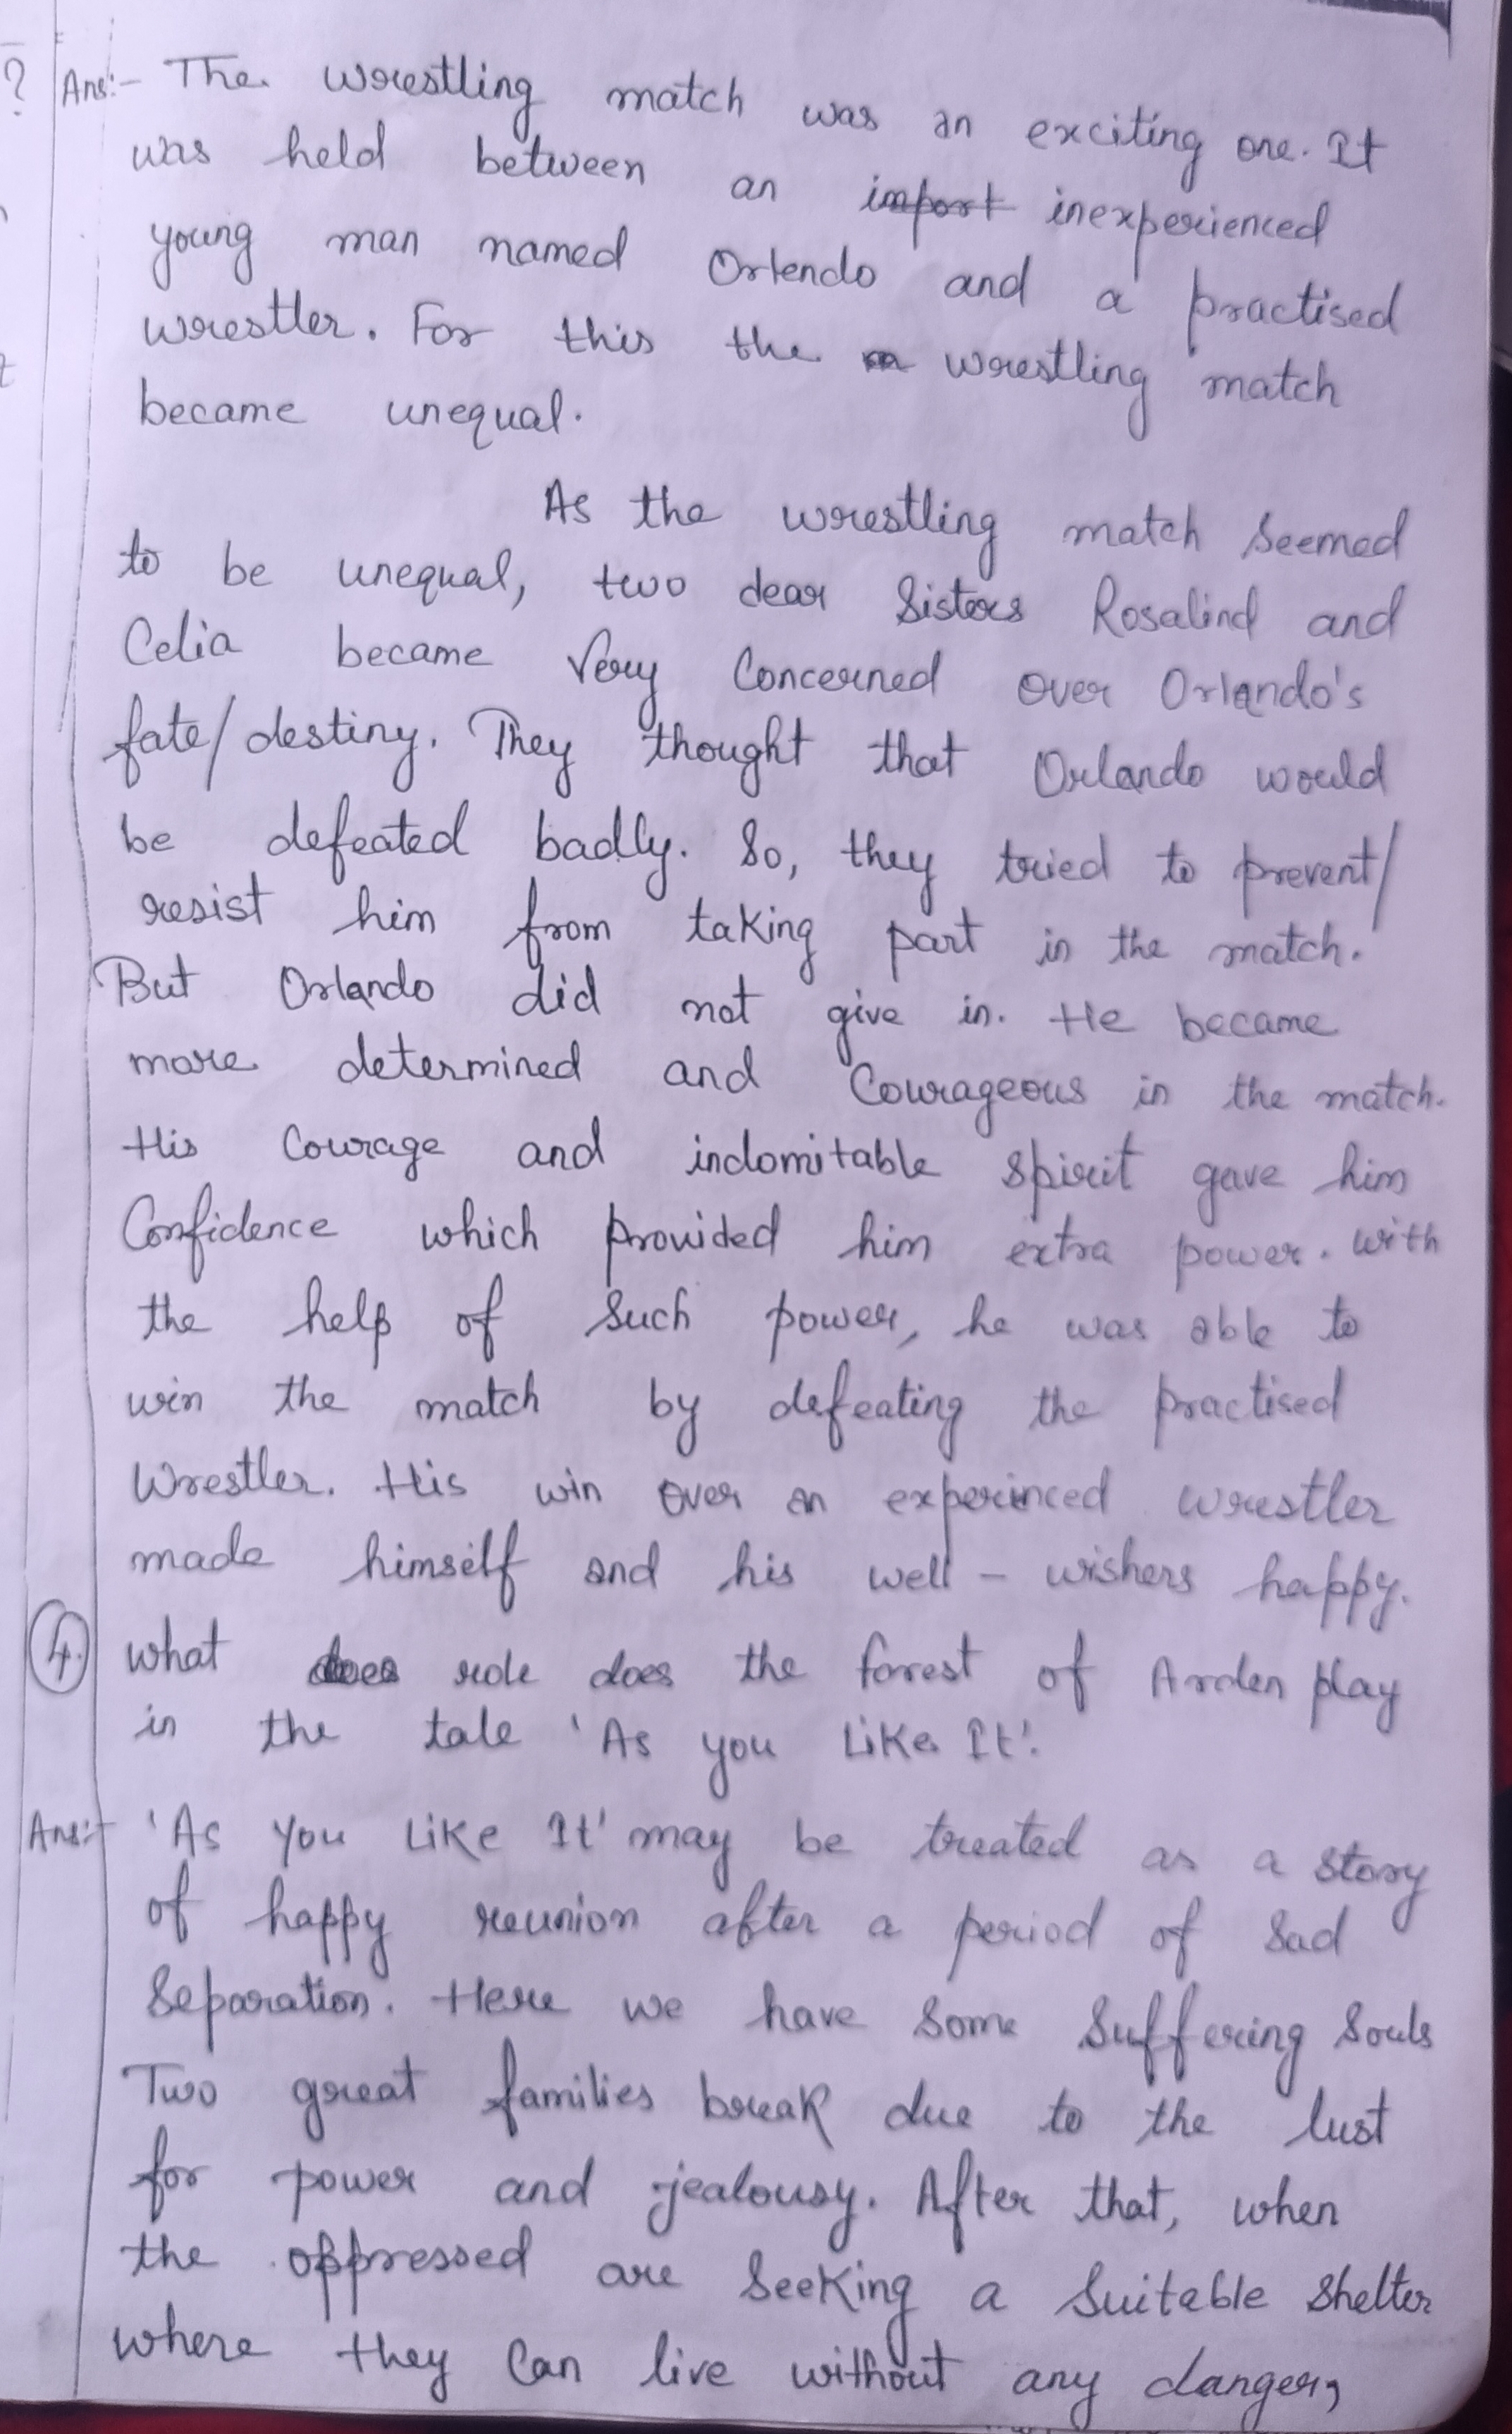 ? Ans:- The wrestling match was an exciting one. It
was held between an import inexperienced
young man named Orlendo and a practised
wrestler. For this the wrestling match
became unequal.
As the wrestling match seemed
to be unequal, two dear sisters Rosalind and
Celia became very concerned over Orlando's
fate/destiny. They thought that Orlando would
be defeated badly. So, they tried to prevent/
resist him from taking part in the match.
But Orlando did not give in. He became
more determined and courageous in the match.
His courage and indomitable spirit gave him
confidence which provided him extra power. with
the help of such power, he was able to
win the match by defeating the practised
wrestler. His win over an experinced wrestler
made himself and his well-wishers happy.
4. what does role does the forest of Arden play
in the tale 'As you Like It'.
Ans:- 'As You Like It' may be treated as a story
of happy reunion after a period of sad
separation. Here we have some suffering souls
Two great families break due to the lust
for power and jealousy. After that, when
the oppressed are seeking a suitable shelter
where they can live without any danger,